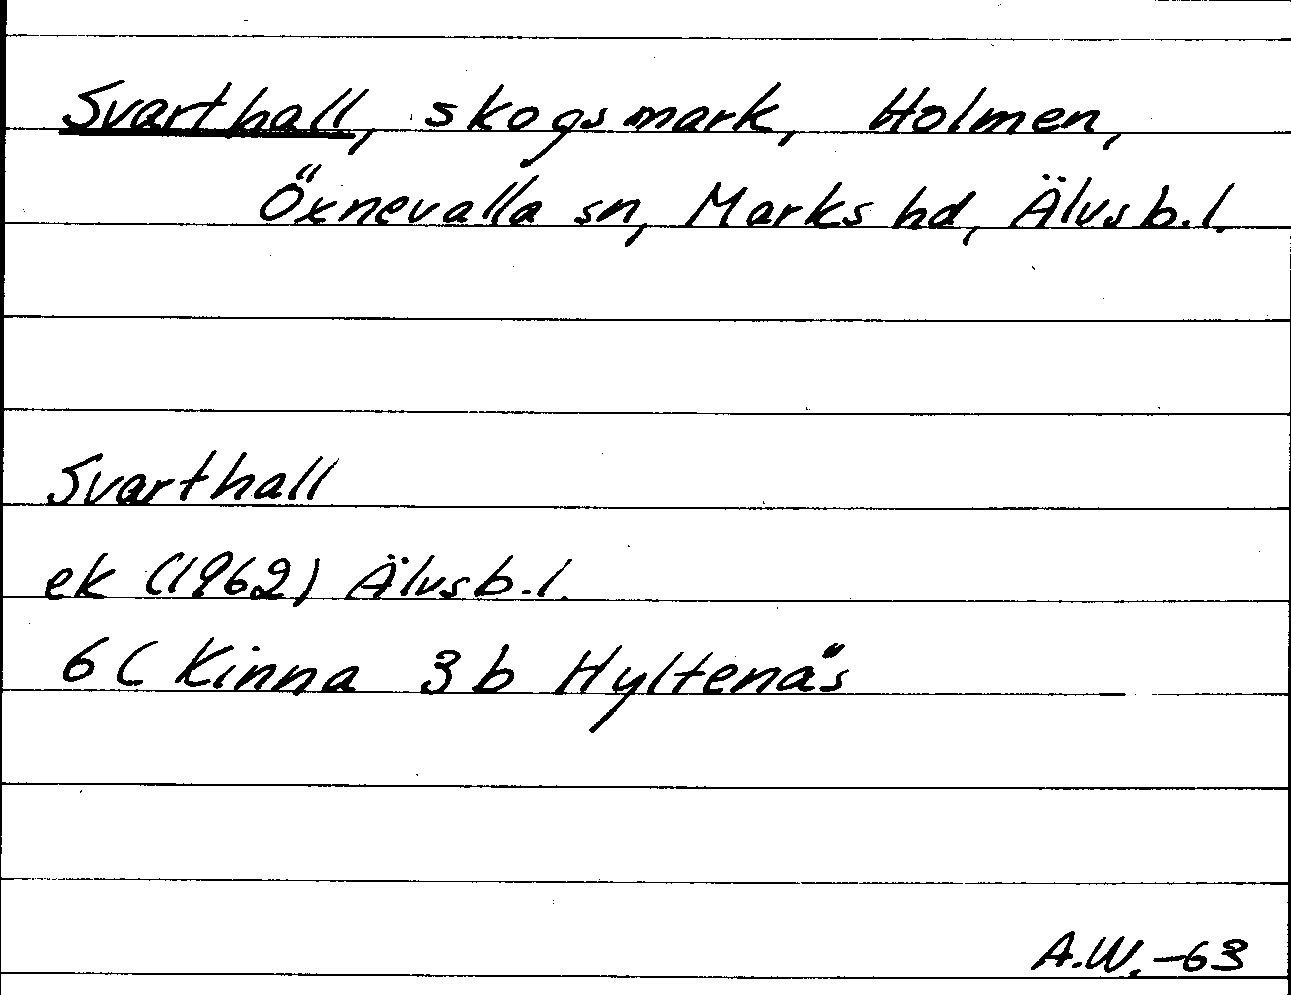 Svarthall, skogsmark, Holmen,
Öxnevalla sn, Marks hd, Älvsb.l.
Svarthall
ek (1962) Älvsb.l.
6C Kinna 3b Hyltenäs
A.W.-63